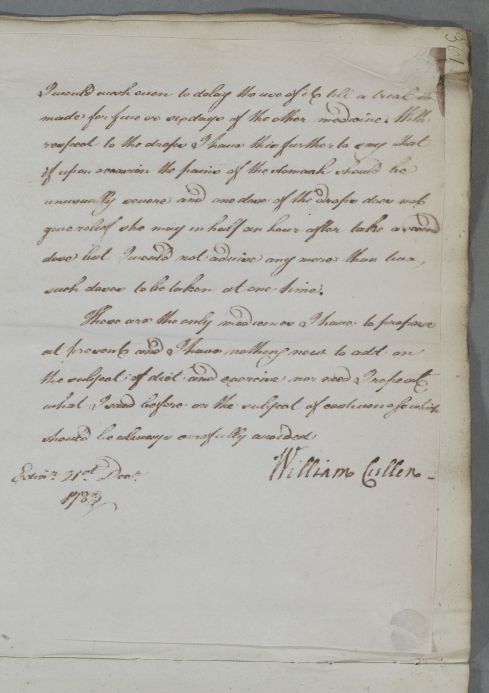 301
I would wish even to delay the use of it till a trial is
made for five or six days of the other medicine. With
respect to the drops I have this further to say that
if upon occasion the pain of the stomach should be
unusually severe and one dose of the drops does not
give relief she may in half an hour after take a second
dose but I would not advise any more than two
such doses to be taken at one time.
These are the only medicines I have to propose
at present and I have nothing new to add on
the subject of diet and exercise nor need I repeat
what I said before on the subject of costiveness which
should be always carefully avoided
Edinr. 21st Decr.
William Cullen
178